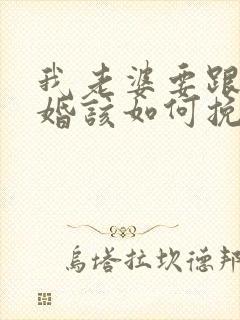 我老婆要跟
婚該如何挽
烏塔拉坎德邦